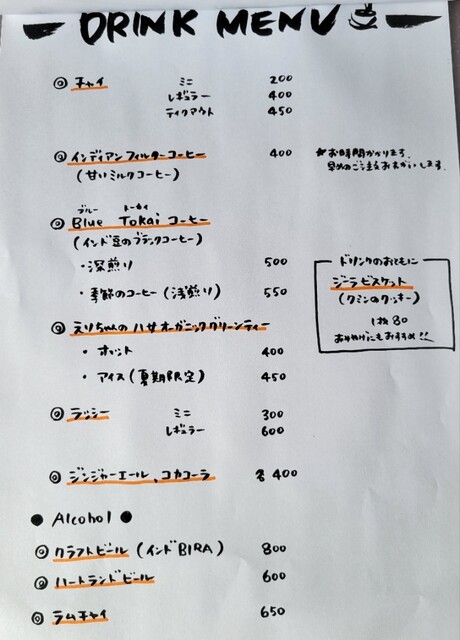 DRINK MENU
◎ チャイ ミニ 200
レギュラー 400
テイクアウト 450
◎ インディアンフィルターコーヒー 400
(甘いミルクコーヒー)
★お時間かかります。
早めのご注文お願いします。
ブルー トーカイ
◎ Blue Tokai コーヒー
(インド豆のブラックコーヒー)
・深煎り 500
・季節のコーヒー(浅煎り) 550
ドリンクのおともに
ジーラビスケット
(クミンのクッキー)
1枚 80
おみやげにもおすすめ!!
◎ えりちゃんのハサオーガニックグリーンティー
・ホット 400
・アイス(夏期限定) 450
◎ ラッシー ミニ 300
レギュラー 600
◎ ジンジャーエール、コカコーラ 各 400
● Alcohol ●
◎ クラフトビール (インドBIRA) 800
◎ ハートランドビール 600
◎ ラムチャイ 650